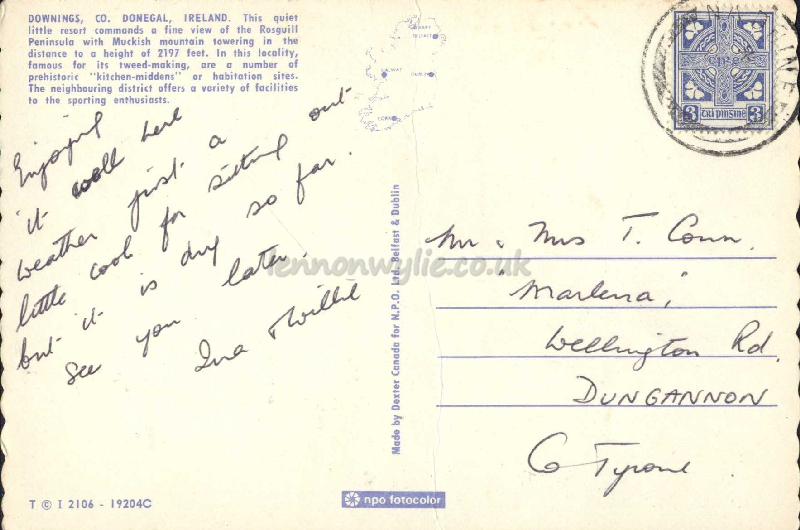 DOWNINGS, CO. DONEGAL, IRELAND. This quiet
little resort commands a fine view of the Rosguill
Peninsula with Muckish mountain towering in the
distance to a height of 2197 feet. In this locality,
famous for its tweed-making, are a number of
prehistoric "kitchen-middens" or habitation sites.
The neighbouring district offers a variety of facilities
to the sporting enthusiasts.
Enjoying
it well here
weather just a
little cool for sitting out
but it is dry so far.
See you later.
Ina & Willie
T © I 2106 - 19204C
GALWAY
DUBLIN
CORK
BELFAST
Made by Dexter Canada for N.P.O. Ltd. Belfast & Dublin
npo fotocolor
éire
3 trí pinsine 3
Mr & Mrs T. Conn.
'Marlena',
Wellington Rd.
DUNGANNON
Co Tyrone
lennonwylie.co.uk